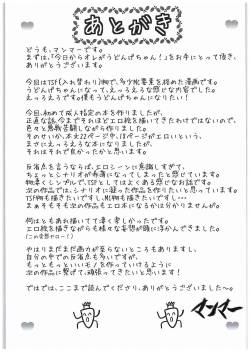 あとがき
どうも、マンマーです。
まずは、「今日からオレがうどんげちゃん！」をお手にとって頂き、
ありがとうございます。
今回はTSF(入れ替わり)物で、多少純愛を挟めた漫画です。
うどんげちゃんになって、えっろえろな感じな内容でした。
えっろえろです。僕もうどんげちゃんになりたい！
今回、初めて成人指定の本を制作しましたが、
正直な話、今までそれほどエロ絵を描いてきたわけではないので、
色々と悪戦苦闘しながら作りました。
そのせいか、本文22ページ中、8ページがエロいという、
まさかの結果になりましたが、
それはそれで良かったかと思います。
反省点を言うならば、エロシーンに意識しすぎて、
ちょっとシナリオが希薄になってしまったと感じています。
物凄くシンプルで、TSFとしてはよくある感じなお話です。
次の作品では、シナリオに凝った作品を作りたいと思っています。
TSF物も描きたいですし、MC物も描きたいですし…
まぁそもそも次の作品もエロ本になるかは分かりませんが。
何はともあれ描いてて凄く楽しかったです。
エロ絵を描きながらも様々な妄想が頭に浮かんできました。
(この変態ヤロー！)
やはりまだまだ画力が至らないところもありますし、
自分の中での反省点も多いですが、
もっともっといいモノを作っていけるように
次の作品に繋げて、頑張ってきたいと思います！
ではでは、ここまで読んでくださり、ありがとうございました～。
マンマー